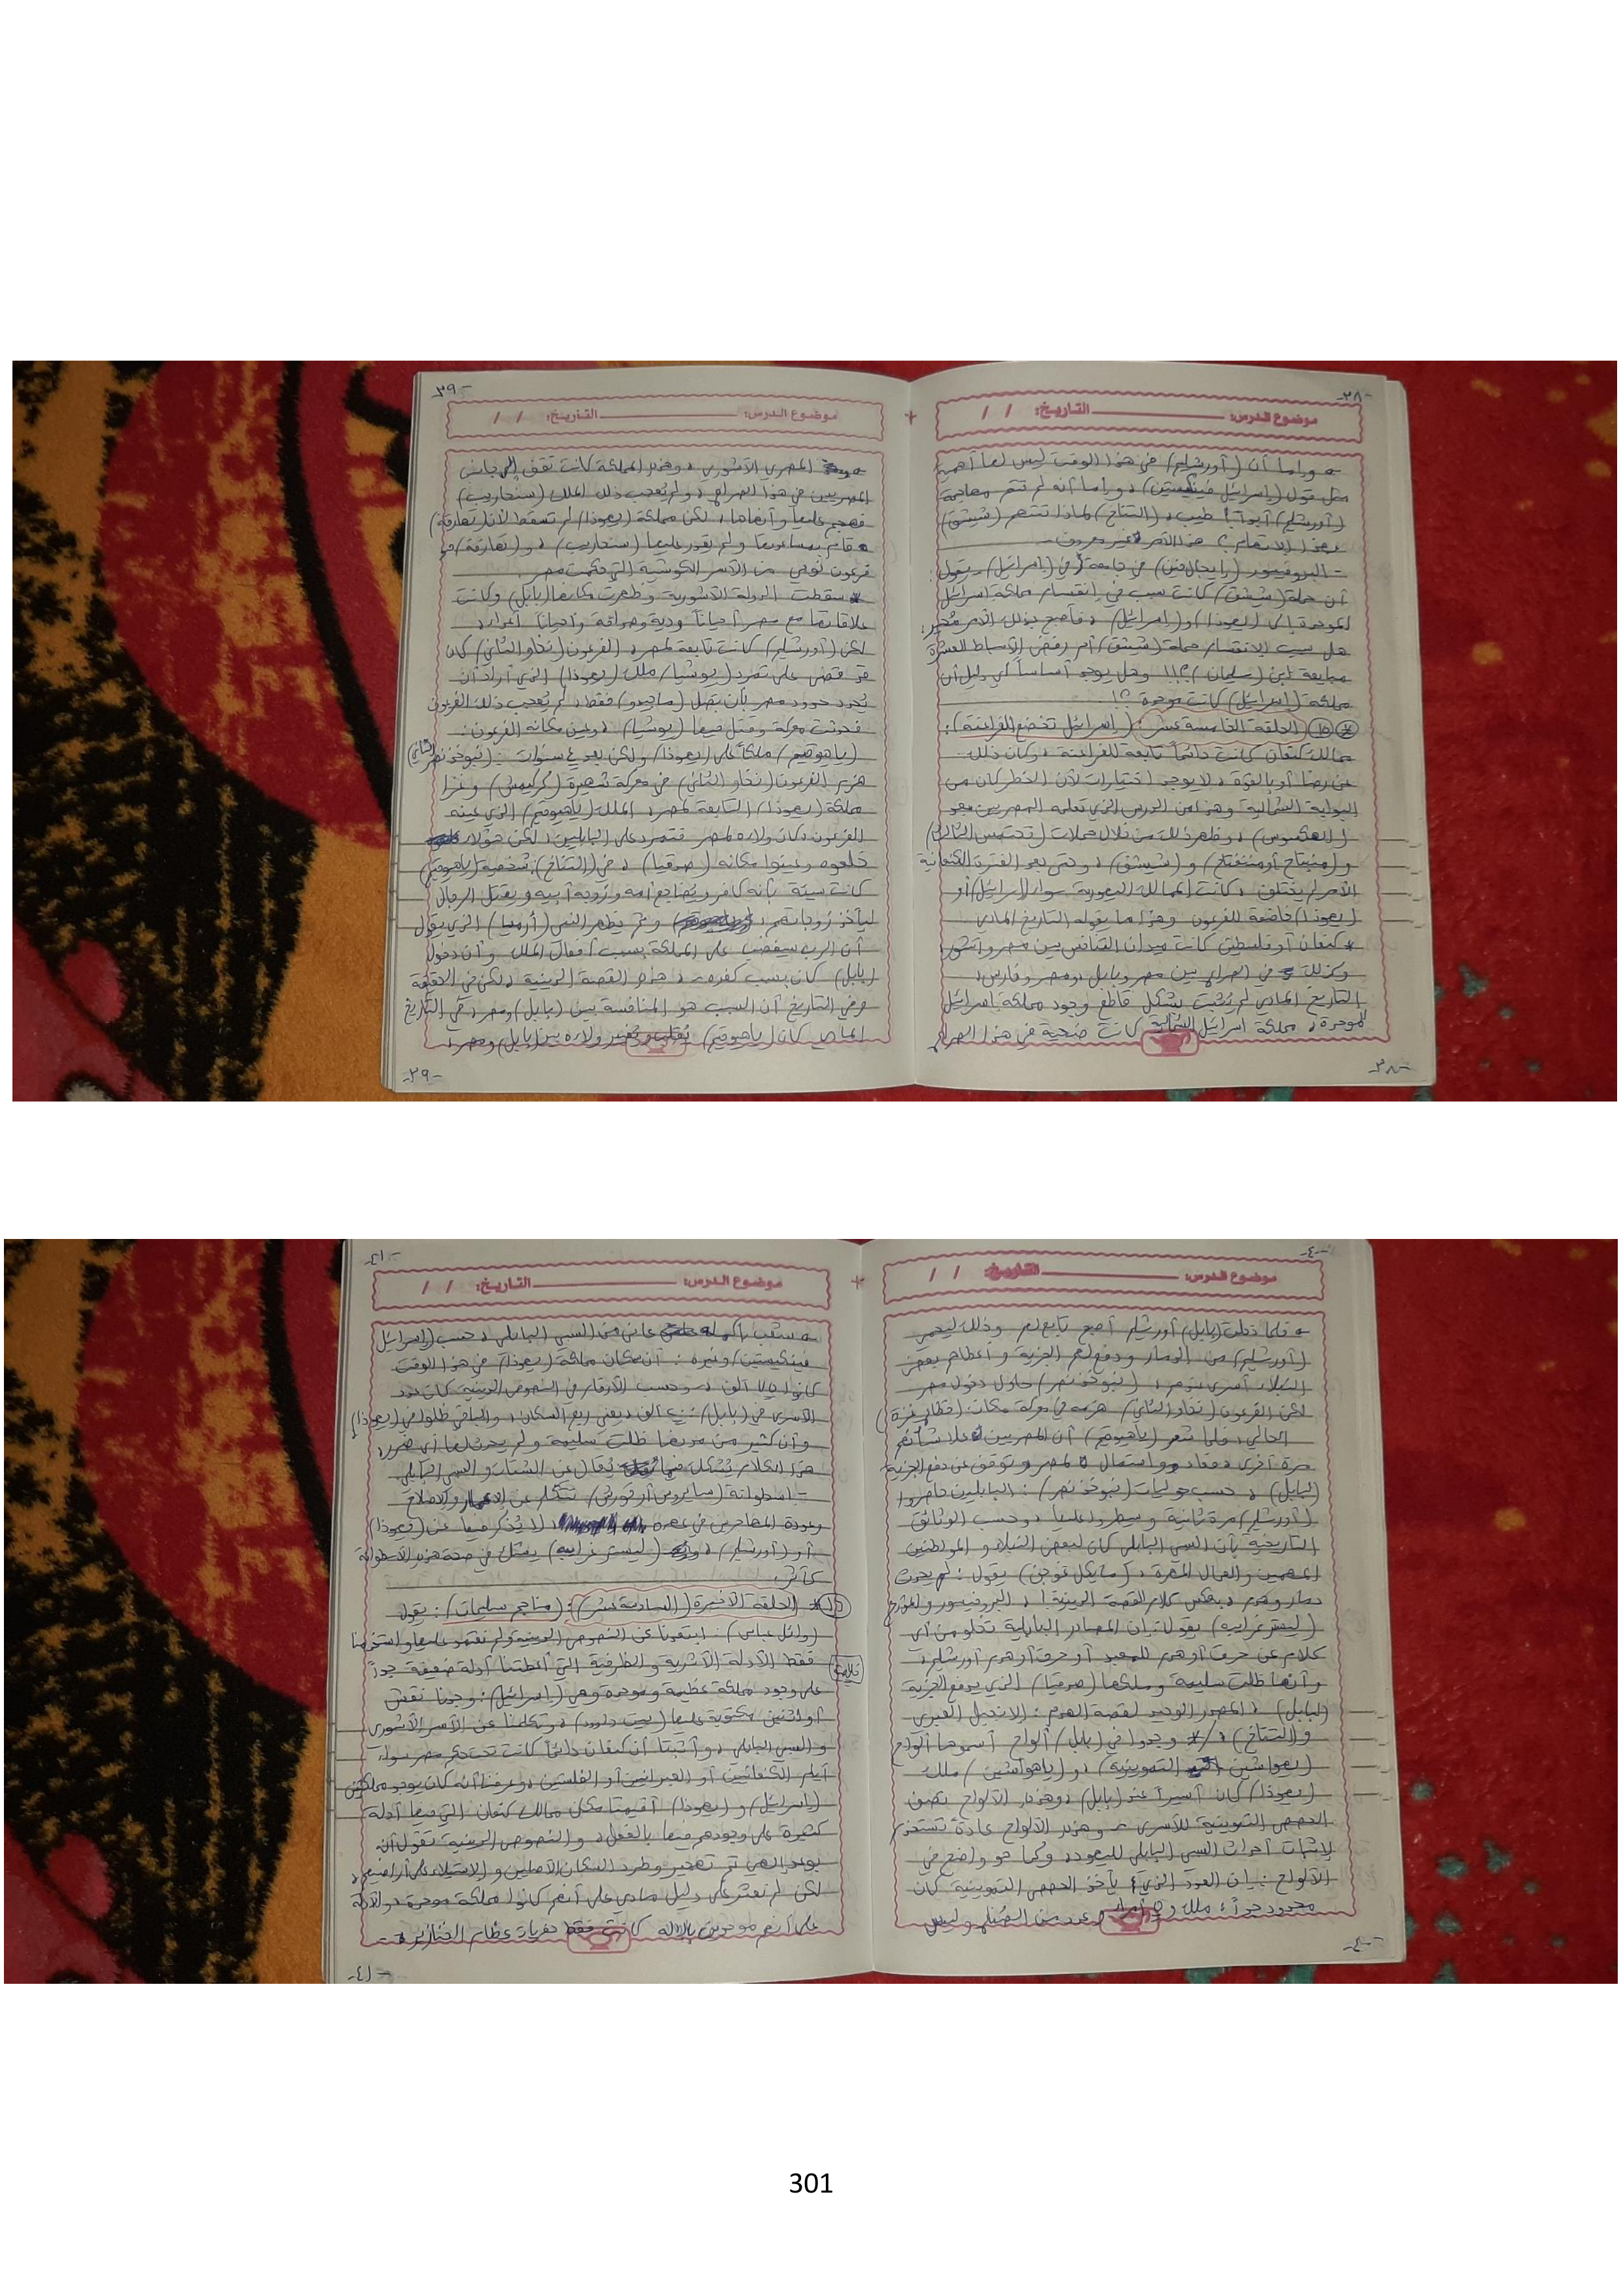 -٣٨-
موضوع الدرس: التاريخ: / /
وإما أن (أورشليم) في هذا الوقت ليس لها أهمية
مثل قول (إسرائيل فينكلستين)، وإما أنه لم تتم مهاجمة
(أورشليم) أبداً! طيب، (التناخ) لماذا تنتهي (شيشق)
بهذا الانتقام؟ هذا الأمر غير معروف -
- البروفيسور في جامعة في (إسرائيل)، يقول:
أن حملة (شيشق) كانت سبب في إنقسام مملكة اسرائيل
الموحدة إلى (يهوذا) و(إسرائيل)، فأصبح بذلك الأمر مُحير:
هل سبب الانقسام حملة (شيشق) أم رفض الأسباط العشرة
مبايعة ابن (سليمان)؟!! وهل يوجد أساساً أي دليل أن
مملكة (إسرائيل) كانت موحدة؟!
* (١٥) الحلقة الخامسة عشر: (إسرائيل تخضع للفراعنة):
ممالك كنعان كانت دائماً تابعة للفراعنة، وكان ذلك
عن رضا أو بالقوة، لا يوجد اختيارات لأن الخطر كان من
البوابة الشمالية وهذا من الدرس الذي تعلمه المصريين بعد
(الهكسوس)، وظهر ذلك من خلال حملات (تحتمس الثالث)
و(منبتاح أو منفتاح) و(شيشق)، وحتى بعد الفترة الكنعانية
الأمر لم يختلف، كانت الممالك اليهودية سواء (إسرائيل) أو
(يهوذا) خاضعة للفرعون وهذا ما يقوله التاريخ المادي
* كنعان أو فلسطين كانت ميدان التنافس بين مصر وآشور
وكذلك في الصراع بين مصر وبابل، ومصر وفارس،
التاريخ المادي لم يُثبت بشكل قاطع وجود مملكة إسرائيل
الموحدة، مملكة اسرائيل الشمالية كانت ضحية في هذا الصراع
-٣٨-
-٣٩-
موضوع الدرس: التاريخ: / /
المصري الآشوري، وهذه المملكة كانت تقف إلى جانب
المصريين في هذا الصراع، ولم يُعجب ذلك الملك (سنحاريب)
فهجم عليها وأنهاها، لكن مملكة (يهوذا) لم تسقط لأن (تهارقة)
قام بمساعدتها ولم يقدر عليها (سنحاريب)، و(تهارقة) هو
فرعون نوبي من الأسر الكوشية التي حكمت مصر
* سقطت الدولة الآشورية وظهرت مكانها (بابل) وكانت
علاقاتها مع مصر أحياناً ودية وصداقة وأحياناً أعداء،
لكن (أورشليم) كانت تابعة لمصر، الفرعون (نخاو الثاني) كان
قد قضى على تمرد (يوشيا) ملك (يهوذا) الذي أراد أن
يُحدد حدود مصر بأن يصل (ماجدو) فقط، لم يُعجب ذلك الفرعون
فحدثت معركة وقتل فيها (يوشيا)، وعين مكانه الفرعون:
(ياهوقيم) ملكاً على (يهوذا)، ولكن بعد ٤ سنوات: (نبوخذ نصر الثاني)
هزم الفرعون (نخاو الثاني) في معركة شهيرة (كركميش) وغزا
مملكة (يهوذا) التابعة لمصر، الملك (ياهوقيم) الذي عينه
الفرعون وكان ولاءه لمصر فتمرد على البابليين، لكن هؤلاء
خلعوه وعينوا مكانه (صدقيا)، في (التناخ): شخصية (ياهوقيم)
كانت سيئة بأنه كافر ويُضاجع أمه وزوجة أبيه ويقتل الرجال
ليأخذ زوجاتهم، وثم يظهر النبي (أرميا) الذي يقول
أن الرب سيغضب على المملكة بسبب أفعال الملك وأن دخول
(بابل) كان بسبب كفره، هذه القصة الدينية، لكن في الحقيقة
وفي التاريخ أن السبب هو المنافسة بين (بابل) ومصر، في التاريخ
المادي كان (ياهوقيم) يُقلب ويُغير ولاءه بين (بابل) ومصر،
-٣٩-
-٤٠-
موضوع الدرس: التاريخ: / /
فلما دخلت (بابل) أورشليم أصبح تابع لهم وذلك ليحمي
(أورشليم) من الدمار ودفع لهم الجزية وأعطاهم بعض
النبلاء أسرى لديهم، (نبوخذ نصر) حاول دخول مصر
لكن الفرعون (نخاو الثاني) هزمه في معركة مكان: (قطاع غزة)
الحالي، فلما شعر (ياهوقيم) أن المصريين علا شأنهم
مرة أخرى، فعاد واستمال لمصر وتوقف عن دفع الجزية
(لبابل)، حسب حوليات (نبوخذ نصر): البابليين حاصروا
(أورشليم) مرة ثانية وسيطروا عليها، وحسب الوثائق
التاريخية بأن السبي البابلي كان لبعض النبلاء والمواطنين
المهمين والعمال المهرة، يقول: لم يحدث
دمار وهدم، بعكس كلام القصة الدينية!، البروفيسور والمؤرخ
(ليستر غرابيه) يقول: بأن المصادر البابلية تخلو من أي
كلام عن حرق أو هدم للمعبد أو حرق أو هدم أورشليم،
وأنها ظلت سليمة وملكها (صدقيا) الذي يدفع الجزية
(لبابل)، المصدر الوحيد لقصة الهدم: الانجيل العبري
و(التناخ)، /* وجدوا في (بابل) ألواح أسموها ألواح
(يهواشين التموينية)، و(ياهوآشين) ملك
(يهوذا) كان أسيراً عند (بابل)، وهذه الألواح تصف
الحصص التموينية للأسرى، وهذه الألواح عادةً تستخدم
لإثبات أحداث السبي البابلي لليهود، وكما هو واضح في
الألواح: بأن العدد الذي يأخذ الحصص التموينية كان
محدود جداً، ملك و٥ أمراء وعدد من الصُنّاع وليس
-٤٠-
-٤١-
موضوع الدرس: التاريخ: / /
شعب بأكمله عانى من السبي البابلي، حسب (إسرائيل
فينكلستين) وغيره: أن سكان مملكة (يهوذا) في هذا الوقت
كانوا ٧٥ ألف، وحسب الأرقام في النصوص الدينية كان عدد
الأسرى في (بابل): ألف، يعني ربع السكان، والباقي ظلوا في (يهوذا)
وأن كثير من مدنها ظلت سليمة ولم يحدث لها أي ضرر،
هذا الكلام يُشكك فيما يُقال عن الشتات والسبي البابلي
- اسطوانة (سايروس أو قورش) تتكلم عن الإعمار والإصلاح
وعودة المهاجرين في عصره، لا يُذكر فيها عن (يهوذا)
أو (أورشليم)، و(ليستر غرابيه) يشكك في صحة هذه الاسطوانة
كأثر.
*(١٦) الحلقة الأخيرة (السادسة عشر): (مناجم سليمان): يقول
(وائل عباس): ابتعدنا عن النصوص الدينية ولم نعتمد عليها واستخدمنا
فقط الأدلة الأثرية والظرفية التي أعطتنا أدلة ضعيفة جداً
على وجود مملكة عظيمة وموحدة وهي (إسرائيل): وجدنا نقش
أو اثنين مكتوبة عليها (بيت داوود)، وتكلمنا عن الأسر الآشوري
والسبي البابلي، وأثبتنا أن كنعان دائماً كانت تحت حكم مصر سواء
أيام الكنعانيين أو العبرانيين أو الفلستين، وعرفنا أنه كان يوجد مملكتين
(إسرائيل) و(يهوذا) أقيمتا مكان ممالك كنعان التي فيها أدلة
كثيرة على وجودهم فيها بالفعل، والنصوص الدينية تقول أن
بوعد إلهي تم تهجير وطرد السكان الأصليين والاستيلاء على أراضيهم،
لكن لم نعثر على دليل مادي على أنهم كانوا مملكة موحدة، والأدلة
على أنهم موحدين بالإله كانت فقط حفريات عظام الخنازير،
-٤١-
301